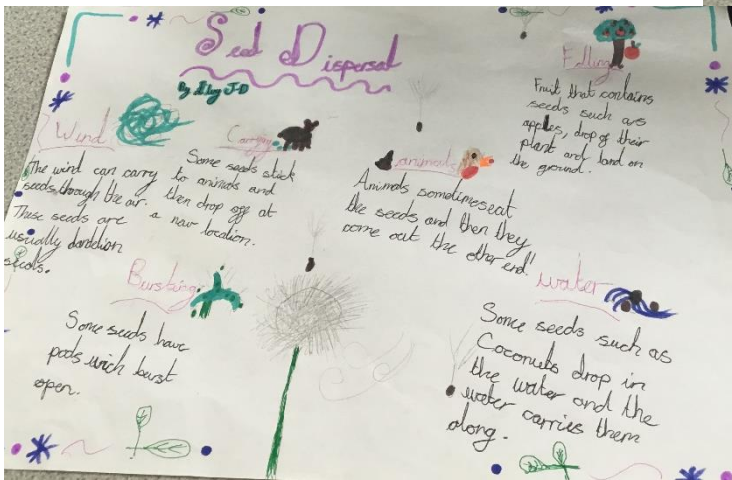 Seed Dispersal
By
J-D
Wind
The wind can carry
seeds through the air.
These seeds are
usually dandelion
seeds.
Carrying
Some seeds stick
to animals and
then drop off at
a new location.
animals
Animals sometimes eat
the seeds and then they
come out the other end!
Falling
Fruit that contains
seeds such as
apples, drop of their
plant and land on
the ground.
Bursting
Some seeds have
pods wich burst
open.
water
Some seeds such as
Coconuts drop in
the water and the
water carries them
along.